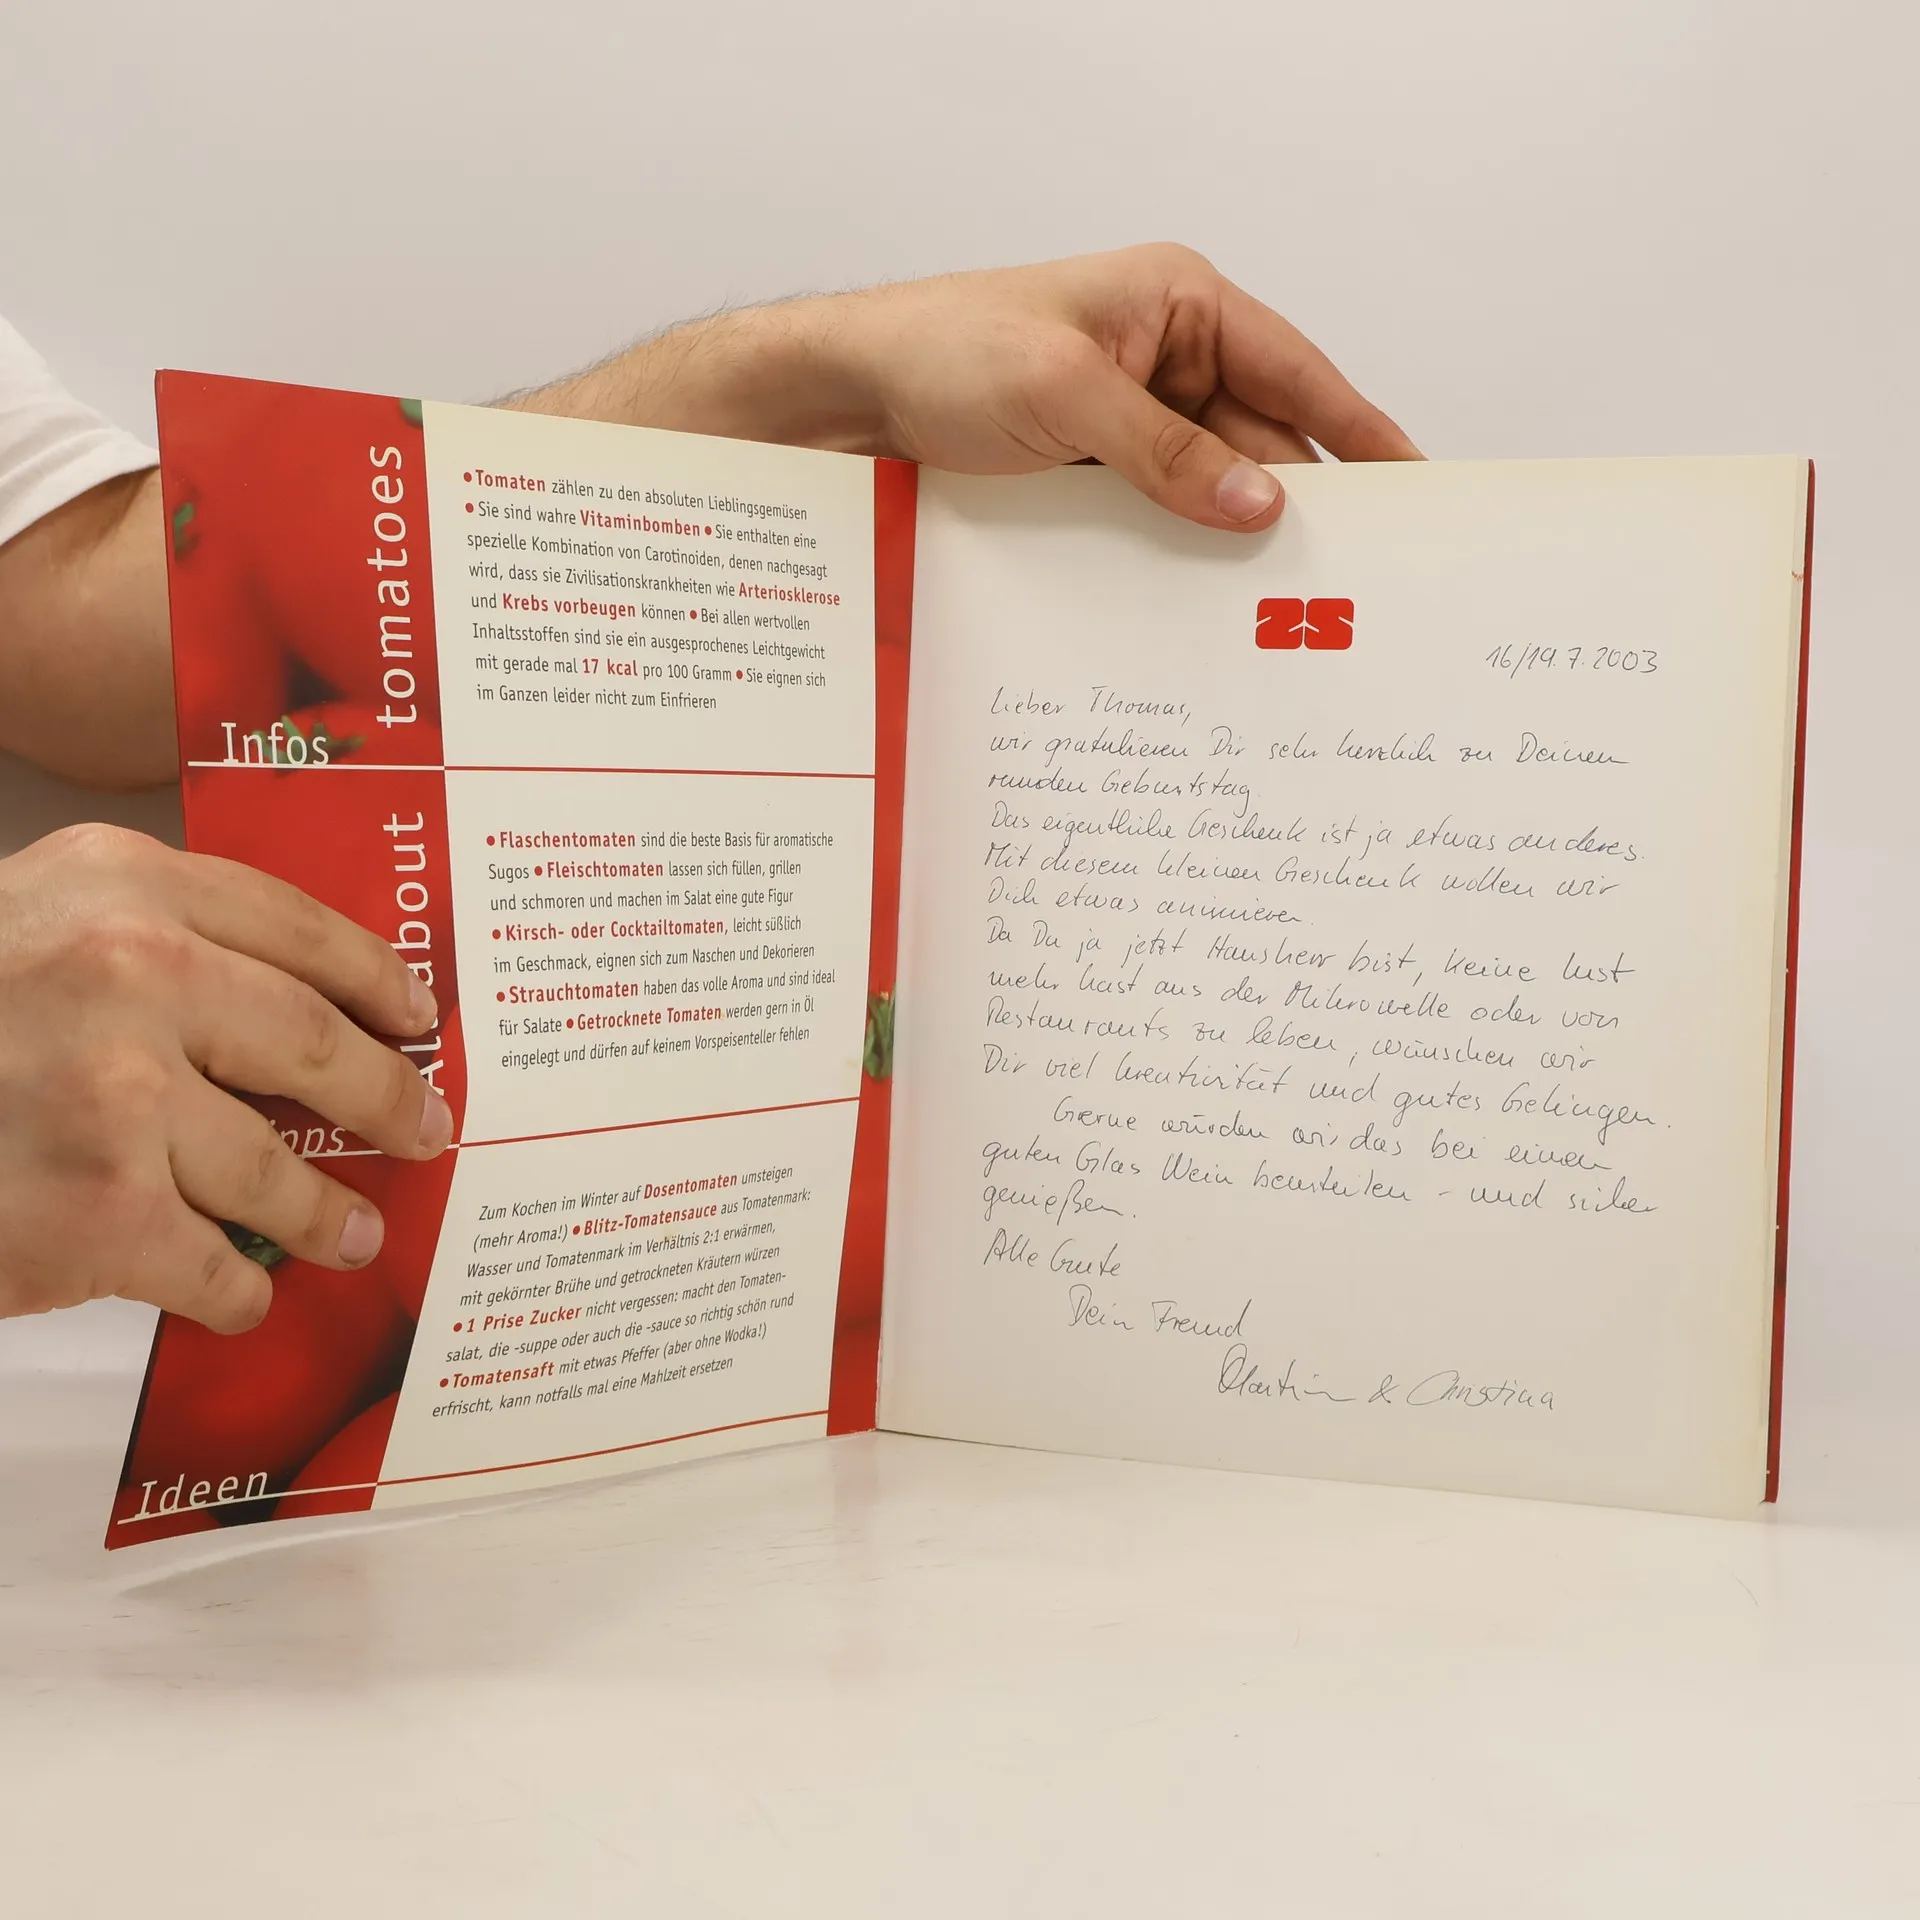 All about tomatoes
Infos
• Tomaten zählen zu den absoluten Lieblingsgemüsen
• Sie sind wahre Vitaminbomben • Sie enthalten eine
spezielle Kombination von Carotinoiden, denen nachgesagt
wird, dass sie Zivilisationskrankheiten wie Arteriosklerose
und Krebs vorbeugen können • Bei allen wertvollen
Inhaltsstoffen sind sie ein ausgesprochenes Leichtgewicht
mit gerade mal 17 kcal pro 100 Gramm • Sie eignen sich
im Ganzen leider nicht zum Einfrieren
ipps
• Flaschentomaten sind die beste Basis für aromatische
Sugos • Fleischtomaten lassen sich füllen, grillen
und schmoren und machen im Salat eine gute Figur
• Kirsch- oder Cocktailtomaten, leicht süßlich
im Geschmack, eignen sich zum Naschen und Dekorieren
• Strauchtomaten haben das volle Aroma und sind ideal
für Salate • Getrocknete Tomaten werden gern in Öl
eingelegt und dürfen auf keinem Vorspeisenteller fehlen
Ideen
Zum Kochen im Winter auf Dosentomaten umsteigen
(mehr Aroma!) • Blitz-Tomatensauce aus Tomatenmark:
Wasser und Tomatenmark im Verhältnis 2:1 erwärmen,
mit gekörnter Brühe und getrockneten Kräutern würzen
• 1 Prise Zucker nicht vergessen: macht den Tomaten-
salat, die -suppe oder auch die -sauce so richtig schön rund
• Tomatensaft mit etwas Pfeffer (aber ohne Wodka!)
erfrischt, kann notfalls mal eine Mahlzeit ersetzen
ZS
16/19.7.2003
Lieber Thomas,
wir gratulieren Dir sehr herzlich zu Deinem
runden Geburtstag.
Das eigentliche Geschenk ist ja etwas anderes.
Mit diesem kleinen Geschenk wollen wir
Dich etwas animieren.
Da Du ja jetzt Hausherr bist, keine Lust
mehr hast aus der Mikrowelle oder von
Restaurants zu leben, wünschen wir
Dir viel Kreativität und gutes Gelingen.
Gerne würden wir das bei einem
guten Glas Wein beurteilen - und sicher
genießen.
Alle Gute
Dein Freund
Martin & Christina